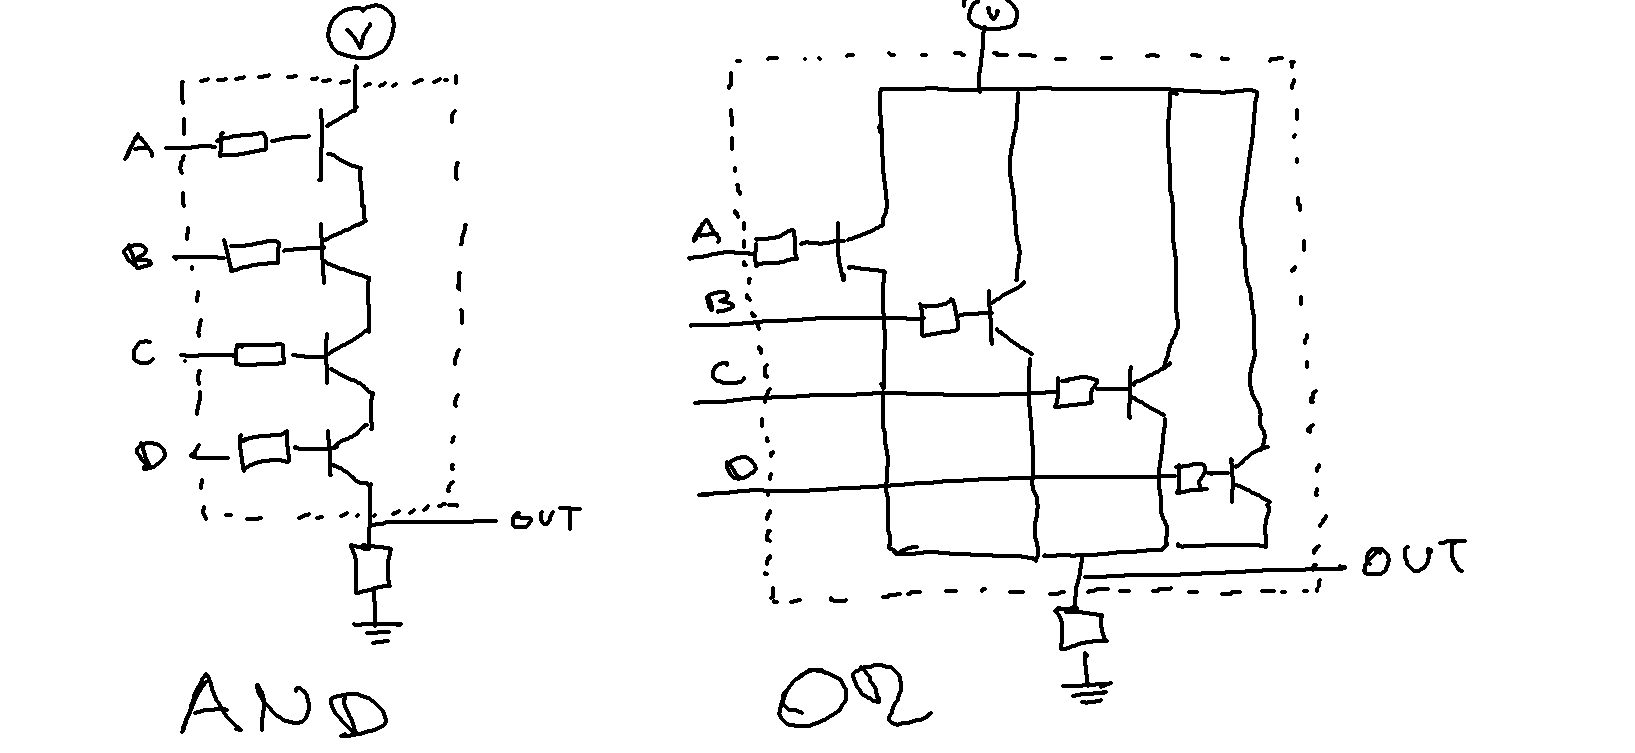 V
A
B
C
D
OUT
AND
V
A
B
C
D
OUT
OR